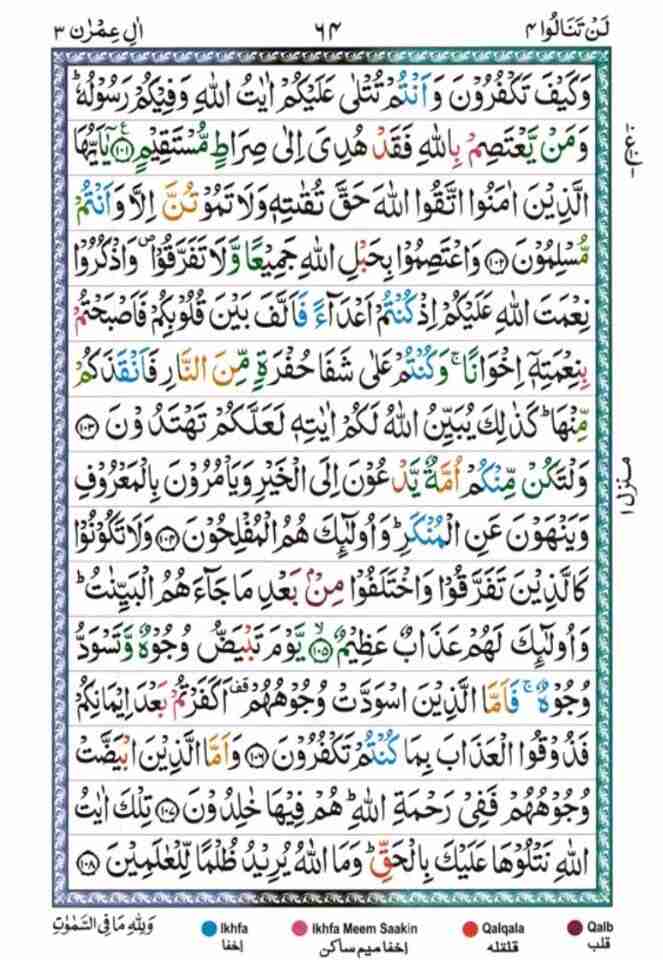 لَنْ تَنَالُوا ٤
٦٤
اٰلِ عِمْرٰن ٣
وَكَيْفَ تَكْفُرُوْنَ وَاَنْتُمْ تُتْلٰى عَلَيْكُمْ اٰيٰتُ اللّٰهِ وَفِيْكُمْ رَسُوْلُهٗ ؕ
وَمَنْ يَّعْتَصِمْ بِاللّٰهِ فَقَدْ هُدِىَ اِلٰى صِرَاطٍ مُّسْتَقِيْمٍ ۧ ﴿۱۰۱﴾ يٰۤاَيُّهَا
الَّذِيْنَ اٰمَنُوا اتَّقُوا اللّٰهَ حَقَّ تُقٰتِهٖ وَلَا تَمُوْتُنَّ اِلَّا وَاَنْتُمْ
مُّسْلِمُوْنَ ﴿۱۰۲﴾ وَاعْتَصِمُوْا بِحَبْلِ اللّٰهِ جَمِيْعًا وَّلَا تَفَرَّقُوْا ۪ وَاذْكُرُوْا
نِعْمَتَ اللّٰهِ عَلَيْكُمْ اِذْ كُنْتُمْ اَعْدَآءً فَاَلَّفَ بَيْنَ قُلُوْبِكُمْ فَاَصْبَحْتُمْ
بِنِعْمَتِهٖۤ اِخْوَانًا ۚ وَكُنْتُمْ عَلٰى شَفَا حُفْرَةٍ مِّنَ النَّارِ فَاَنْقَذَكُمْ
مِّنْهَا ؕ كَذٰلِكَ يُبَيِّنُ اللّٰهُ لَكُمْ اٰيٰتِهٖ لَعَلَّكُمْ تَهْتَدُوْنَ ﴿۱۰۳﴾
وَلْتَكُنْ مِّنْكُمْ اُمَّةٌ يَّدْعُوْنَ اِلَى الْخَيْرِ وَيَاْمُرُوْنَ بِالْمَعْرُوْفِ
وَيَنْهَوْنَ عَنِ الْمُنْكَرِ ؕ وَاُولٰٓئِكَ هُمُ الْمُفْلِحُوْنَ ﴿۱۰۴﴾ وَلَا تَكُوْنُوْا
كَالَّذِيْنَ تَفَرَّقُوْا وَاخْتَلَفُوْا مِنْۢ بَعْدِ مَا جَآءَهُمُ الْبَيِّنٰتُ ؕ
وَاُولٰٓئِكَ لَهُمْ عَذَابٌ عَظِيْمٌ ۙ ﴿۱۰۵﴾ يَّوْمَ تَبْيَضُّ وُجُوْهٌ وَّتَسْوَدُّ
وُجُوْهٌ ۚ فَاَمَّا الَّذِيْنَ اسْوَدَّتْ وُجُوْهُهُمْ ۟ اَكَفَرْتُمْ بَعْدَ اِيْمَانِكُمْ
فَذُوْقُوا الْعَذَابَ بِمَا كُنْتُمْ تَكْفُرُوْنَ ﴿۱۰۶﴾ وَاَمَّا الَّذِيْنَ ابْيَضَّتْ
وُجُوْهُهُمْ فَفِىْ رَحْمَةِ اللّٰهِ ؕ هُمْ فِيْهَا خٰلِدُوْنَ ﴿۱۰۷﴾ تِلْكَ اٰيٰتُ
اللّٰهِ نَتْلُوْهَا عَلَيْكَ بِالْحَقِّ ؕ وَمَا اللّٰهُ يُرِيْدُ ظُلْمًا لِّلْعٰلَمِيْنَ ﴿۱۰۸﴾
منزل ١
وَلِلّٰهِ مَا فِى السَّمٰوٰتِ
Ikhfa
إخفا
Ikhfa Meem Saakin
إخفا ميم ساكن
Qalqala
قلقله
Qalb
قلب